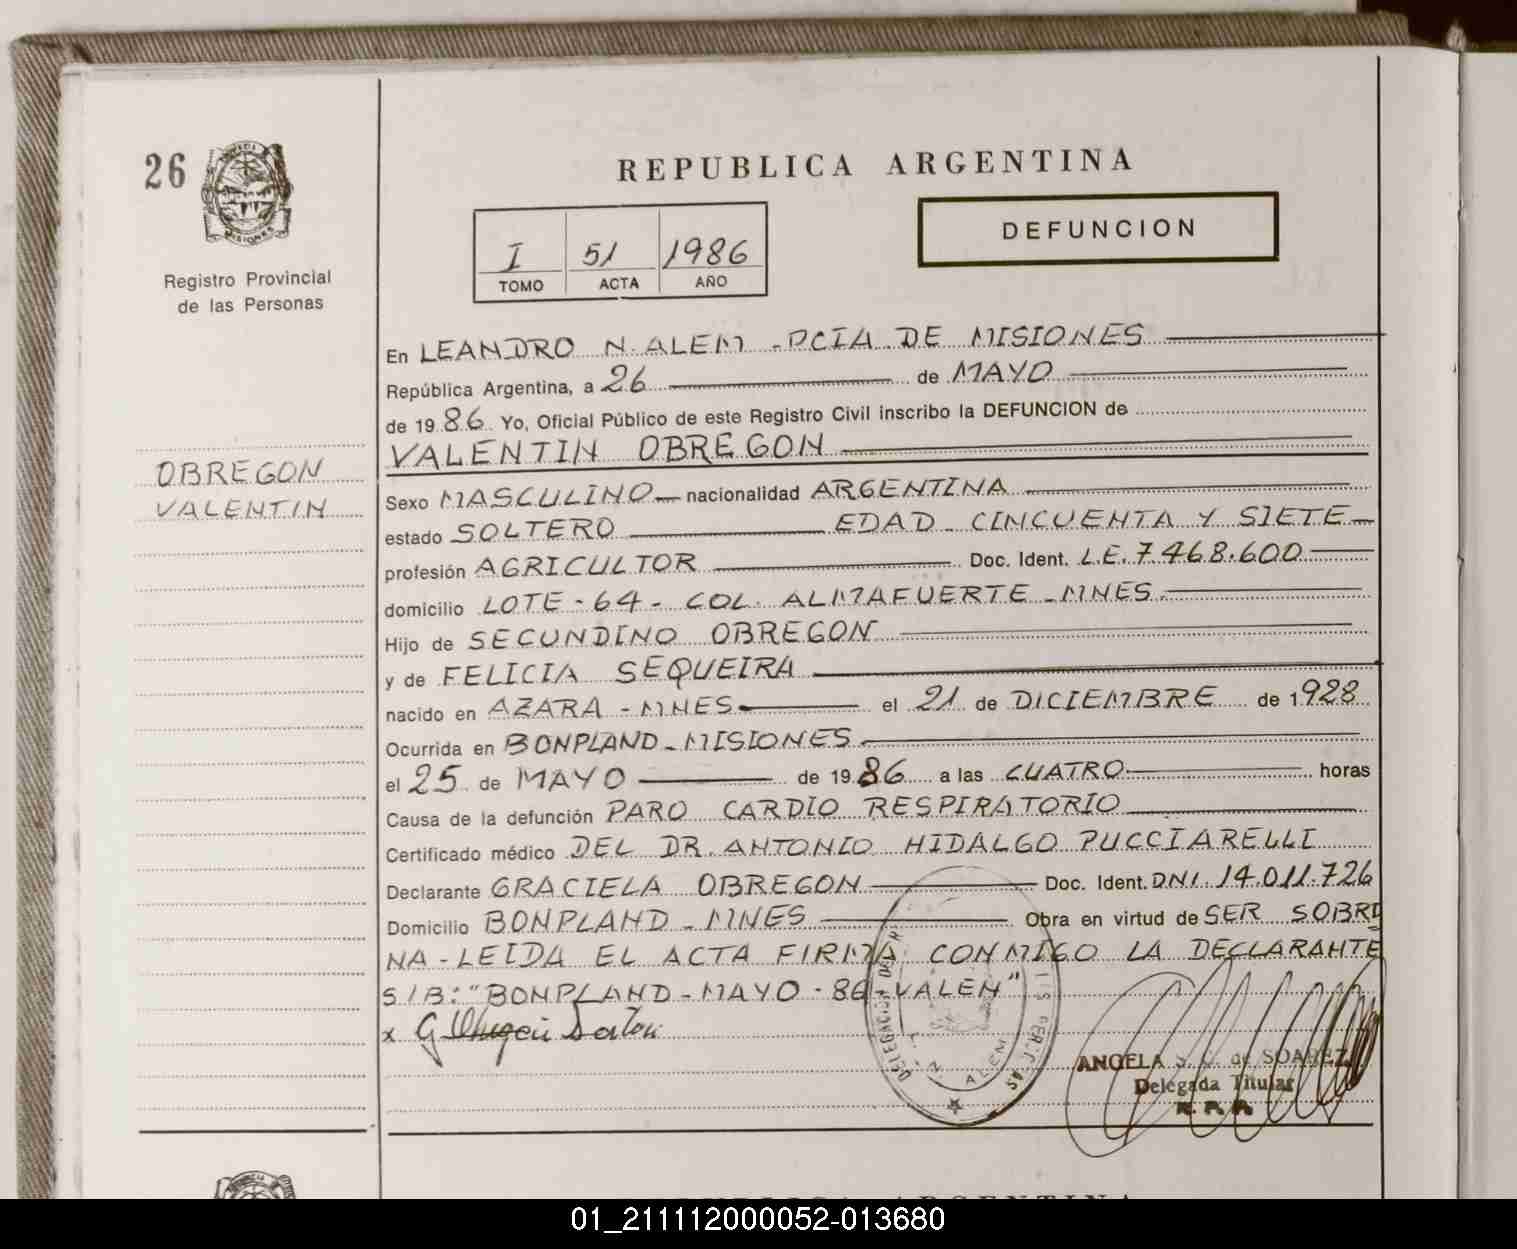 26
MISIONES
Registro Provincial
de las Personas
OBREGON
VALENTIN
REPUBLICA ARGENTINA
I 51 1986
TOMO ACTA AÑO
DEFUNCION
En LEANDRO N. ALEM - PCIA. DE MISIONES
República Argentina, a 26 de MAYO
de 1986. Yo, Oficial Público de este Registro Civil inscribo la DEFUNCION de
VALENTIN OBREGON
Sexo MASCULINO nacionalidad ARGENTINA
estado SOLTERO EDAD - CINCUENTA Y SIETE
profesión AGRICULTOR Doc. Ident. L.E. 7.468.600
domicilio LOTE - 64 - COL. ALMAFUERTE - MNES.
Hijo de SECUNDINO OBREGON
y de FELICIA SEQUEIRA
nacido en AZARA - MNES el 21 de DICIEMBRE de 1928
Ocurrida en BONPLAND - MISIONES
el 25 de MAYO de 1986 a las CUATRO horas
Causa de la defunción PARO CARDIO RESPIRATORIO
Certificado médico DEL DR. ANTONIO HIDALGO PUCCIARELLI
Declarante GRACIELA OBREGON Doc. Ident. DNI. 14.011.726
Domicilio BONPLAND - MNES Obra en virtud de SER SOBRI
NA - LEIDA EL ACTA FIRMA CONMIGO LA DECLARANTE
S/B: "BONPLAND - MAYO - 86 - VALEN"
x G
DELEGACION
L. N. ALEM
ANGELA S. C. de SOAREZ
Delegada Titular
R. P. P.
REPUBLICA ARGENTINA
01_211112000052-013680